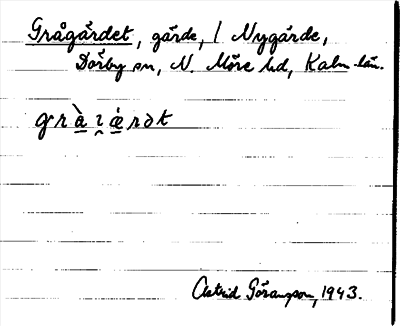 Grågärdet, gärde, / Nygärde,
Dörby sn, N. Möre hd, Kalm. län.
gràɪǽrdt
Astrid Göransson, 1943.